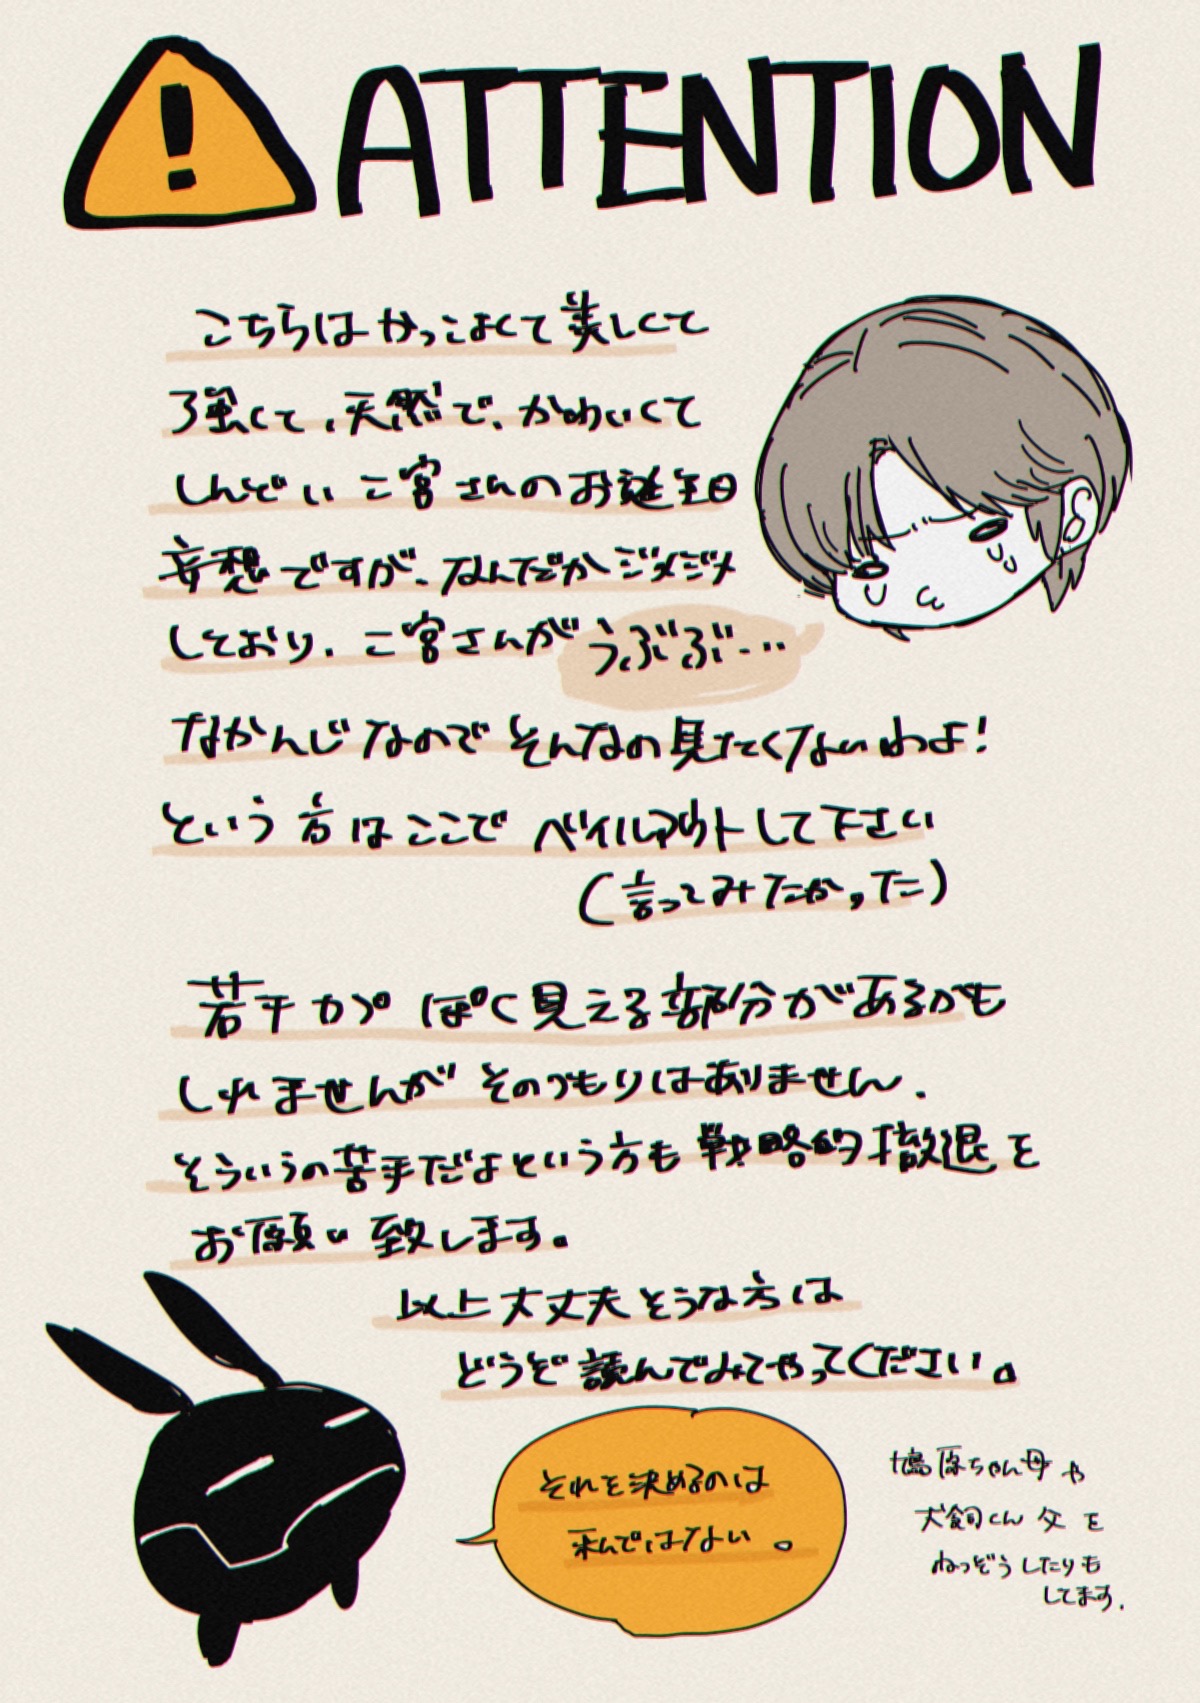 ATTENTION
こちらはかっこよくて美しくて
強くて、天然で、かわいくて
しんどい二宮さんのお誕生日
妄想ですが、なんだかジメジメ
しており、二宮さんがうぶぶ…
なかんじなのでそんなの見たくないわよ!
という方はここでベイルアウトして下さい
(言ってみたかった)
若干カプぽく見える部分があるかも
しれませんがそのつもりはありません.
そういうの苦手だよという方も戦略的撤退を
お願い致します。
以上大丈夫そうな方は
どうぞ読んでみてやってください。
それを決めるのは
ではない。
鳩原ちゃん母や
犬飼くん父を
ねつぞうしたりも
してます.